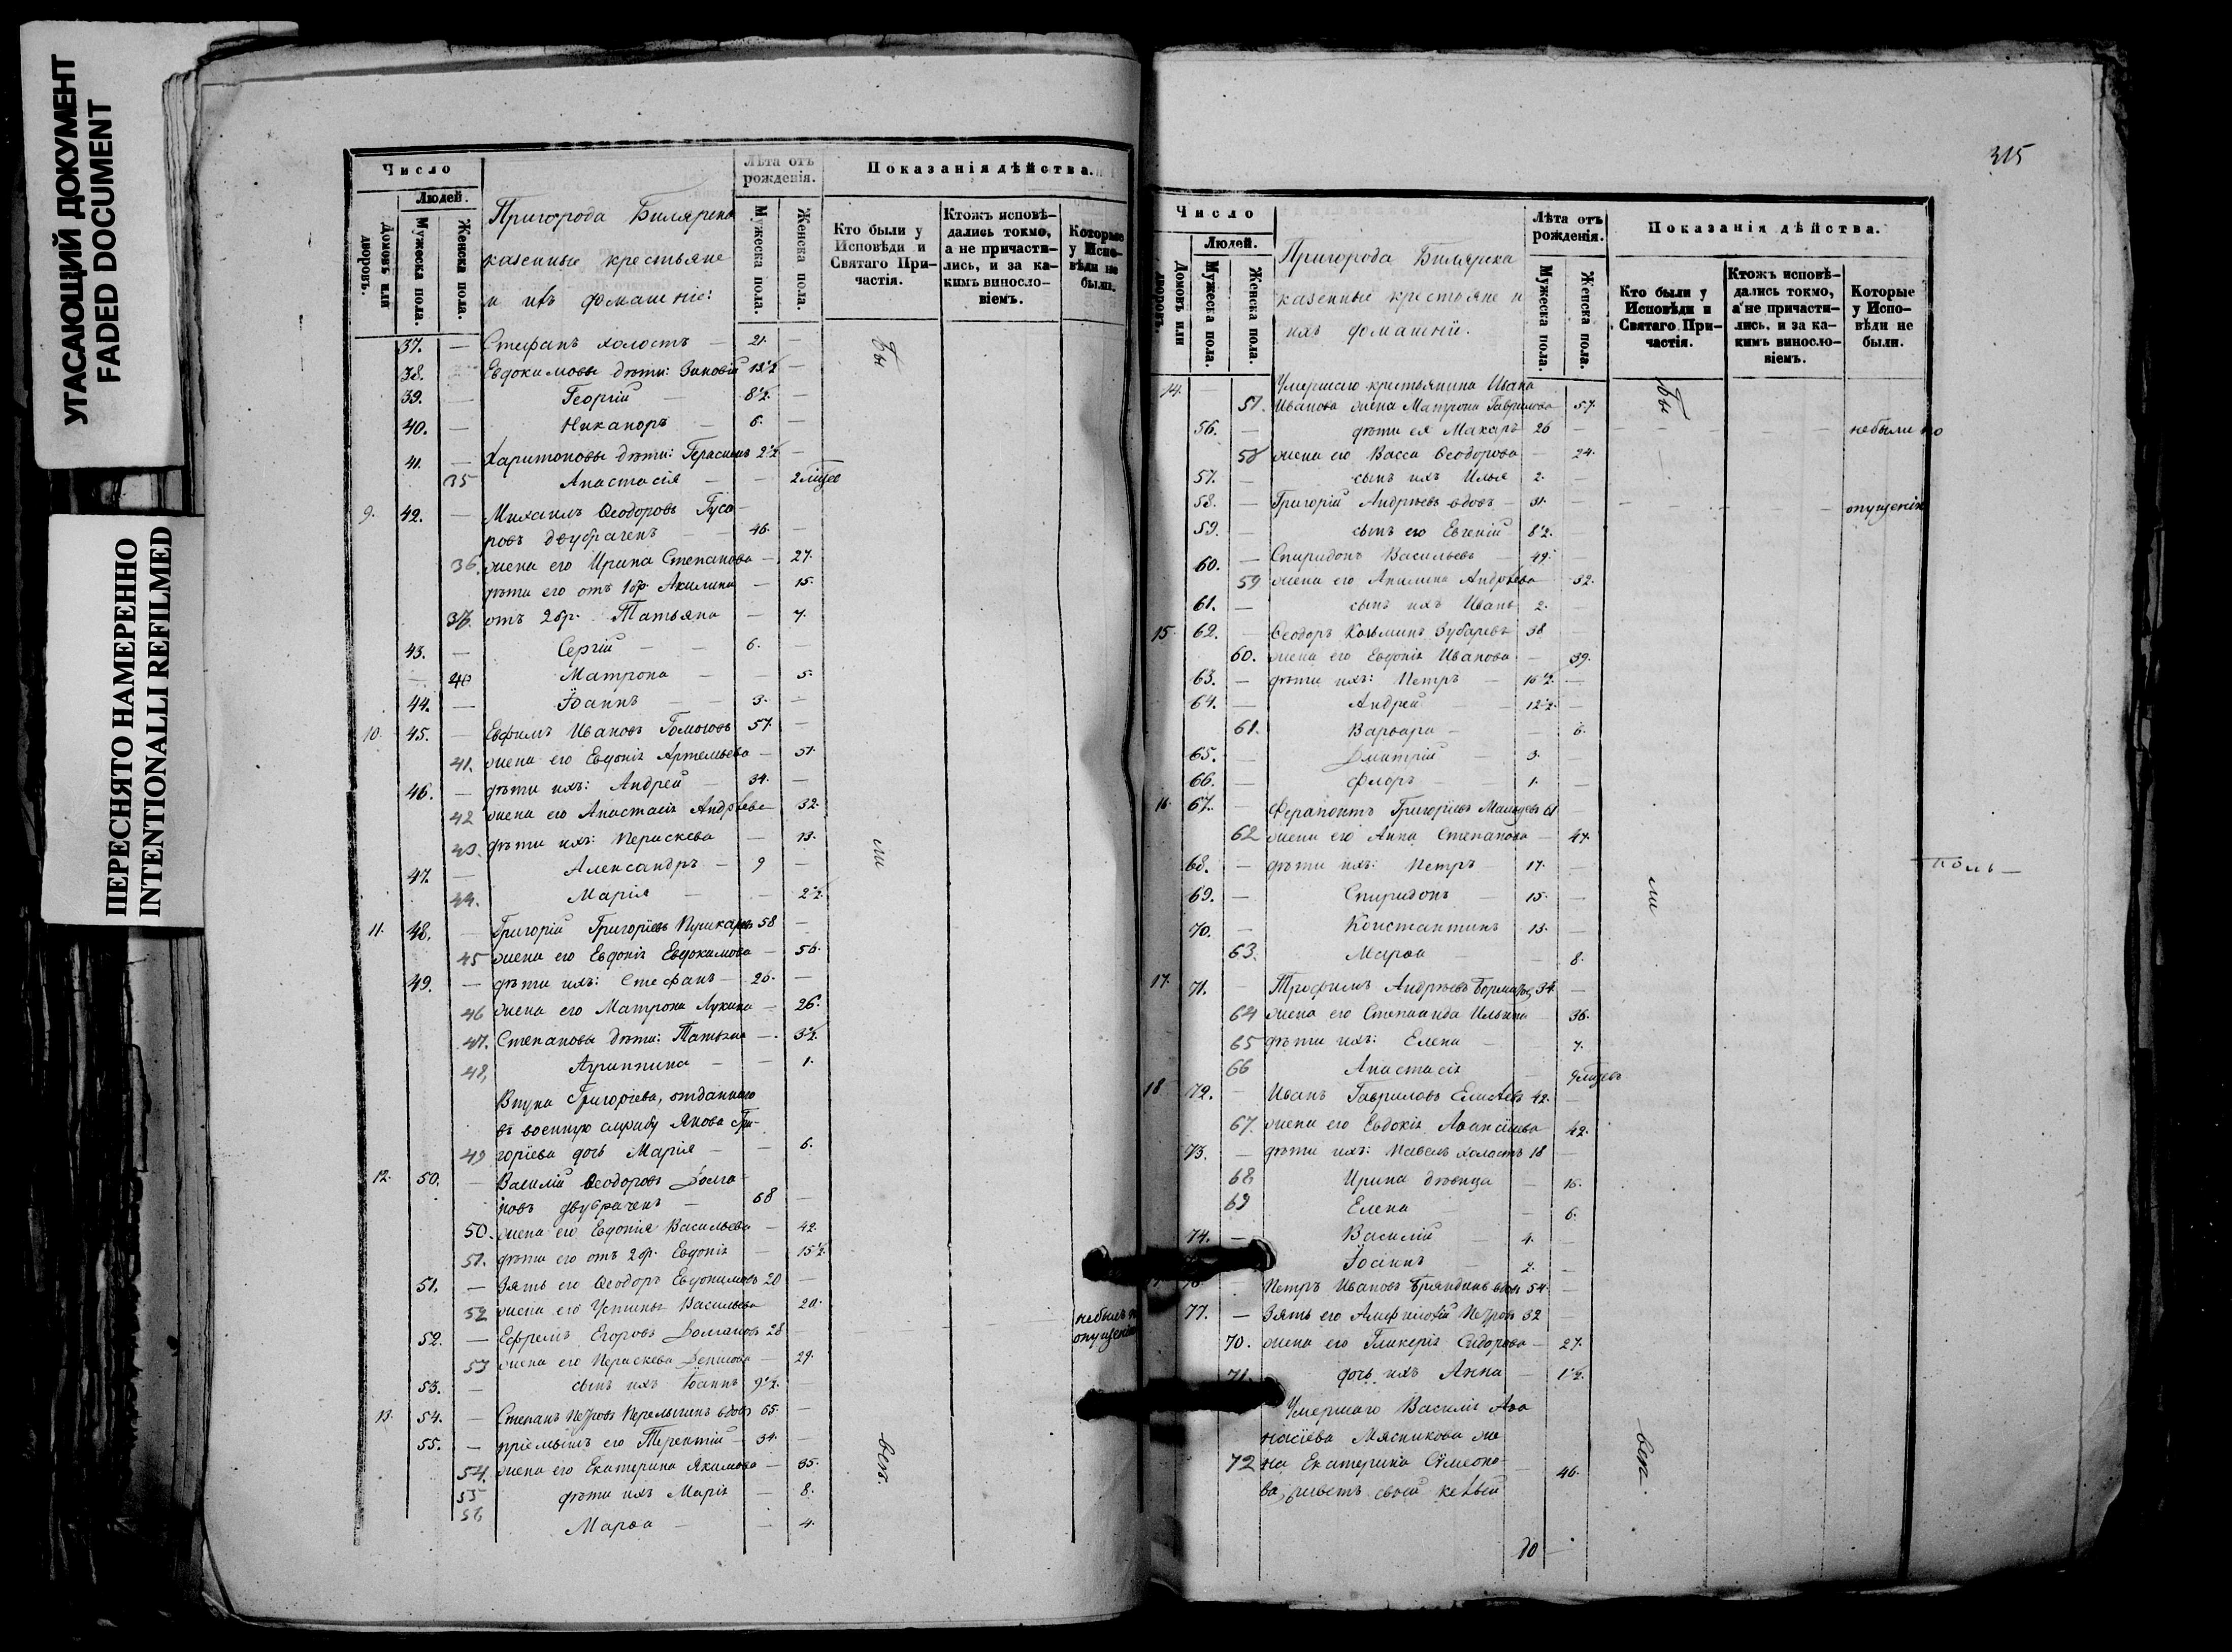 УГАСАЮЩИЙ ДОКУМЕНТ
FADED DOCUMENT
ПЕРЕСНЯТО НАМЕРЕННО
INTENTIONALLI REFILMED
Число
Людей.
Домовъ или дворовъ.
Мужеска пола.
Женска пола.
Пригорода Билярска
казенные крестьяне
и ихъ домашніе:
Лѣта отъ рожденія.
Мужеска пола.
Женска пола.
Показанія дѣйства.
Кто были у Исповѣди и Святаго Причастія.
Ктожъ исповѣдались токмо, а не причастились, и за какимъ винословіемъ.
Которые у Исповѣди не были.
37. — Стефанъ холостъ — 21. —
38. Евдокимовы дѣти: Зиновій 13½ —
39. — Георгій — 8½. —
40. — Никаноръ — 6. —
41. — Харитоновы дѣти: Герасимъ 2½ —
35 Анастасія — — 2
9. 42. — Михаилъ Ѳеодоровъ
двубраченъ — — 46. —
36. жена его Ирина Степанова — 27.
дѣти его отъ 1 бр. Акилина — 15.
отъ 2 бр. Татьяна — 7.
43. — Сергій — — 6. —
— 40 Матрона — — 5.
44. — Іоаннъ — — 3. —
10. 45. — Евфимъ Ивановъ 57. —
41. жена его Евдокія Артемьева — 51.
46. — дѣти ихъ: Андрей — 34. —
42 жена его Анастасія Андрѣева 32.
43. дѣти ихъ: Параскева — 13.
47. — Александръ — 9 —
44. Марія — — 2½.
11. 48. — Григорій Григорьевъ Пушкаревъ 58 —
45 жена его Евдокія Евдокимова — 56.
49. — дѣти ихъ: Стефанъ — 26. —
46 жена его Матрона Лукина — 26.
47. Степановы дѣти: Татьяна — 3½.
48. Агриппина — — 1.
Внука Григоріева, отданнаго
въ военную службу Якова Гри-
49 горіева дочь Марія — — 6.
12. 50. — Василій Ѳеодоровъ Долга
новъ двубраченъ — 68 —
50. жена его Евдокія Васильева — 42.
51. дѣти его отъ 2 бр. Евдокія — 15½.
51. — Зять его Ѳеодоръ Евдокимовъ 20 —
52 жена его Устинья Васильева 20.
52. — Ефремъ Егоровъ Долгановъ 28 — небылъ по опущенію
53 жена его Параскева Денисова — 29.
53. — сынъ ихъ Іоаннъ 9½. —
13. 54. — Степанъ Петровъ Перелыгинъ вдовъ 65. —
55. — пріемышъ его Терентій — 34. —
54. жена его Екатерина Якимова — 35.
55 дѣти ихъ Марія — 8.
56 Марѳа — — 4.
Бы
ли
вси.
315
Число
Людей.
Домовъ или дворовъ.
Мужеска пола.
Женска пола.
Пригорода Билярска
казенные крестьяне и
ихъ домашніи.
Лѣта отъ рожденія.
Мужеска пола.
Женска пола.
Показанія дѣйства.
Кто были у Исповѣди и Святаго Причастія.
Ктожъ исповѣдались токмо, а не причастились, и за какимъ винословіемъ.
Которые у Исповѣди не были.
14. — Умершаго крестьянина Ивана
57. Иванова жена Матрона Гаврилова 57.
56. — дѣти ея Макаръ 26 — небыли по
58 жена его Васса Ѳеодорова — 24.
57. — сынъ ихъ Илья 2. —
58. — Григорій Андрѣевъ вдовъ — 31. — опущенію
59. — сынъ его Евгеній 8½. —
60. — Спиридонъ Васильевъ — 49. —
59 жена его Акилина Андрѣева 32.
61. — сынъ ихъ Иванъ 2. —
15. 62. — Ѳеодоръ Козьминъ Зубаревъ 38 —
60. жена его Евдокія Иванова — 39.
63. — дѣти ихъ: Петръ — 15½. —
64. — Андрей — 12½. —
61. Варвара — — 6.
65. — Дмитрій — 3. —
66. — Флоръ — 1. —
16. 67. — Ферапонтъ Григорьевъ 61 —
62 жена его Анна Степанова — 47.
68. — дѣти ихъ: Петръ — 17. —
69. — Спиридонъ — 15. —
70. — Константинъ 13. —
63. Марѳа — — 8.
17. 71. — Трофимъ Андрѣевъ 34. —
64 жена его Степанида Ильина 36.
65 дѣти ихъ: Елена — 7.
66 Анастасія — 9
18 72. — Иванъ Гавриловъ Елисѣевъ 42. —
67. жена его Евдокія Аѳанасіева 42.
73. — дѣти ихъ: Павелъ холостъ 18 —
68. Ирина дѣвица — 16.
69 Елена — — 6.
74. — Василій — 4. —
Іоаннъ — 2. —
Петръ Ивановъ вдовъ 54. —
77. — Зять его Амфилохій Петровъ 32 —
70. жена его Гликерія Сидорова — 27.
71. дочь ихъ Анна — 1½.
Умершаго Василія Аѳа
насіева Мясникова же
72 на Екатерина Сѵмеоно- — 46.
ва,
Бы
ли
вси.